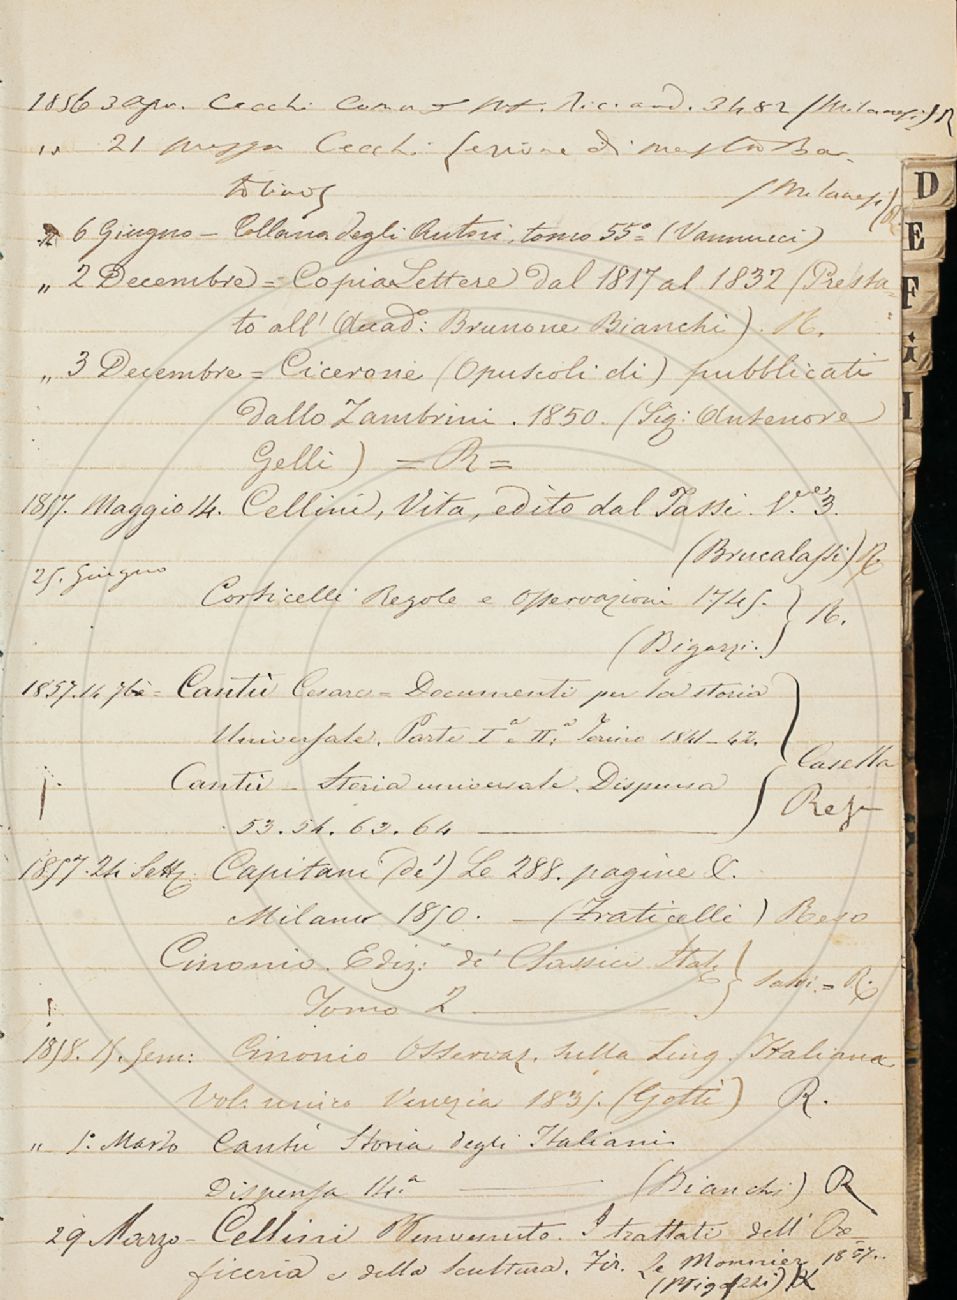 1856 3 Apr. Cecchi Com. ms. Riccard. 3482 (Milanesi) R
" 21 Cecchi Lezione di maestro Bar-
tolino (Milanesi) R
" 6 Giugno - Collana degli Autori, tomo 55º = (Vannucci)
" 2 Decembre = CopiaLettere dal 1817 al 1832 (Presta=
to all' Accad: Brunone Bianchi). R.
" 3 Decembre = Cicerone (Opuscoli di) pubblicati
dallo Zambrini. 1850. (Sig: Antenore
Gelli) = R =
1857. Maggio 14. Cellini, Vita, edito dal Tassi. V.e 3.
(Brucalassi) R
25. Giugno
Corticelli Regole e Osservazioni 1745. R.
(Bigazzi.)
1857. 14 7bre = Cantù Cesare = Documenti per la storia
Universale. Parte Iª e II.ª Torino 1841-42.
Casella
Cantù - Storia universale. Dispensa
53. 54. 63. 64
1857. 24 Sett. Capitani (de') Le 288. pagine &.
Milano 1850. - (Fraticelli) Reso
Cinonio. Ediz: de' Classici Ital.
Tomo 2 Salvi. = R.
1858. 15. Gen: Cinonio Osservaz. sulla Ling. Italiana
Vol. unico Venezia 1835. (Gotti) R.
" 1º. Marzo Cantù Storia degli Italiani
Dispensa 14.ª (Bianchi) R
29 Marzo - Cellini Benvenuto. I trattati dell' Ore=
ficeria e della Scultura. Fir. Le Monnier 1857.
R
D
E
F
G
I